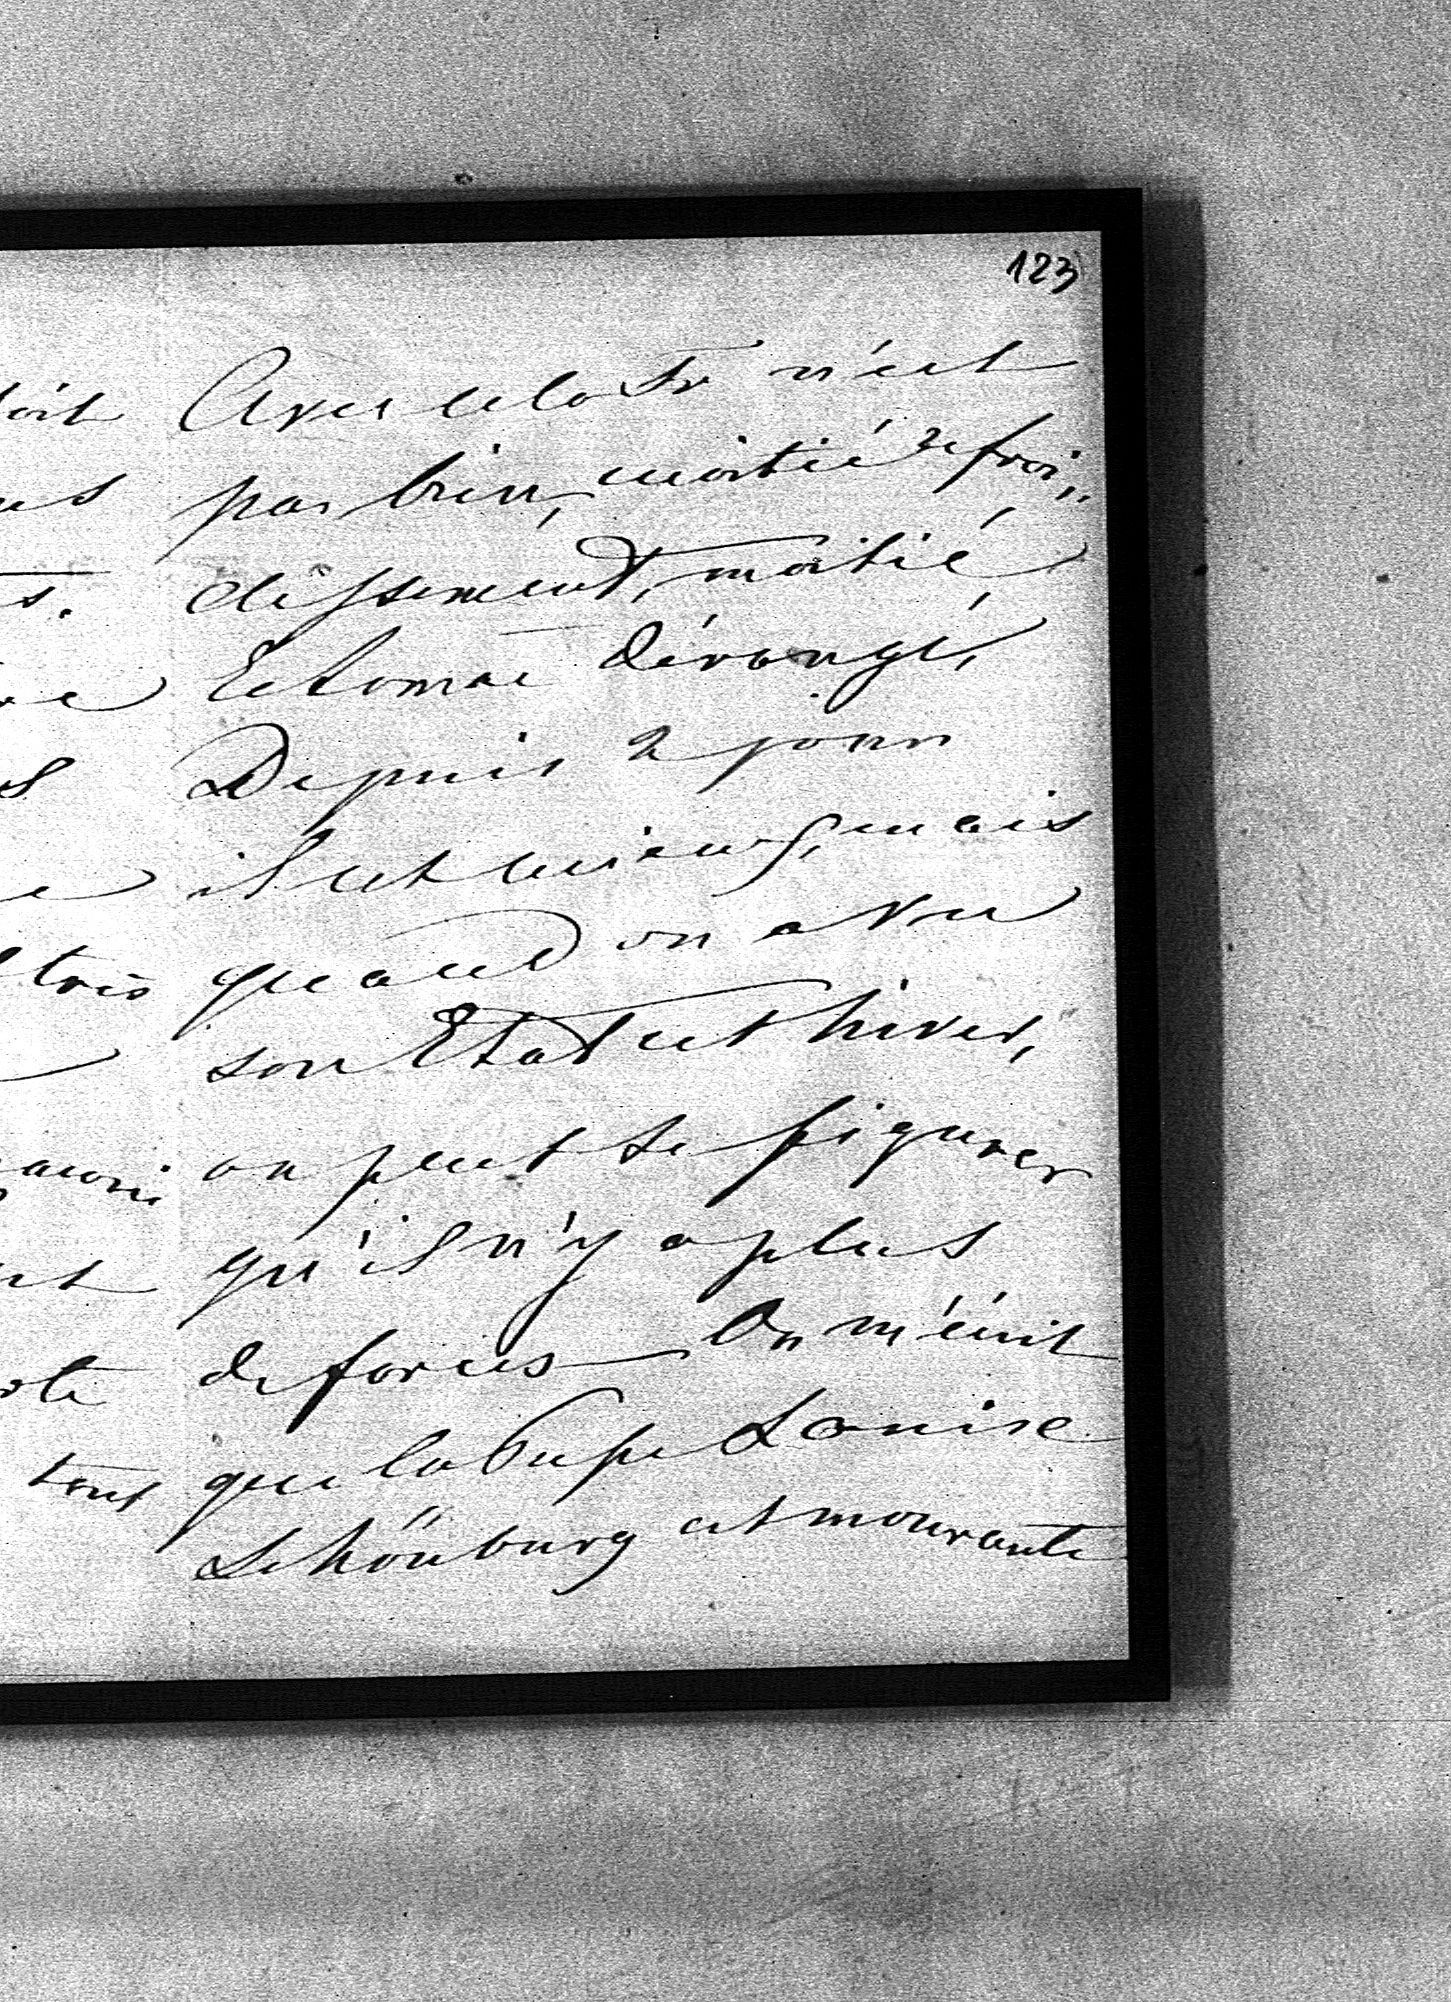 123
Avec cela Fr n'est
pas bien, moitié refroi„
dissement, moitié
Estomac dérangé,
Depuis 2 jours
il est mieux, mais
quand on a vu
son Etat cet hiver,
on peut se figurer
qu'il n'y a plus
de forces — On m'écrit
que la Pcsse Louise
Schönburg est mourante
très
tout